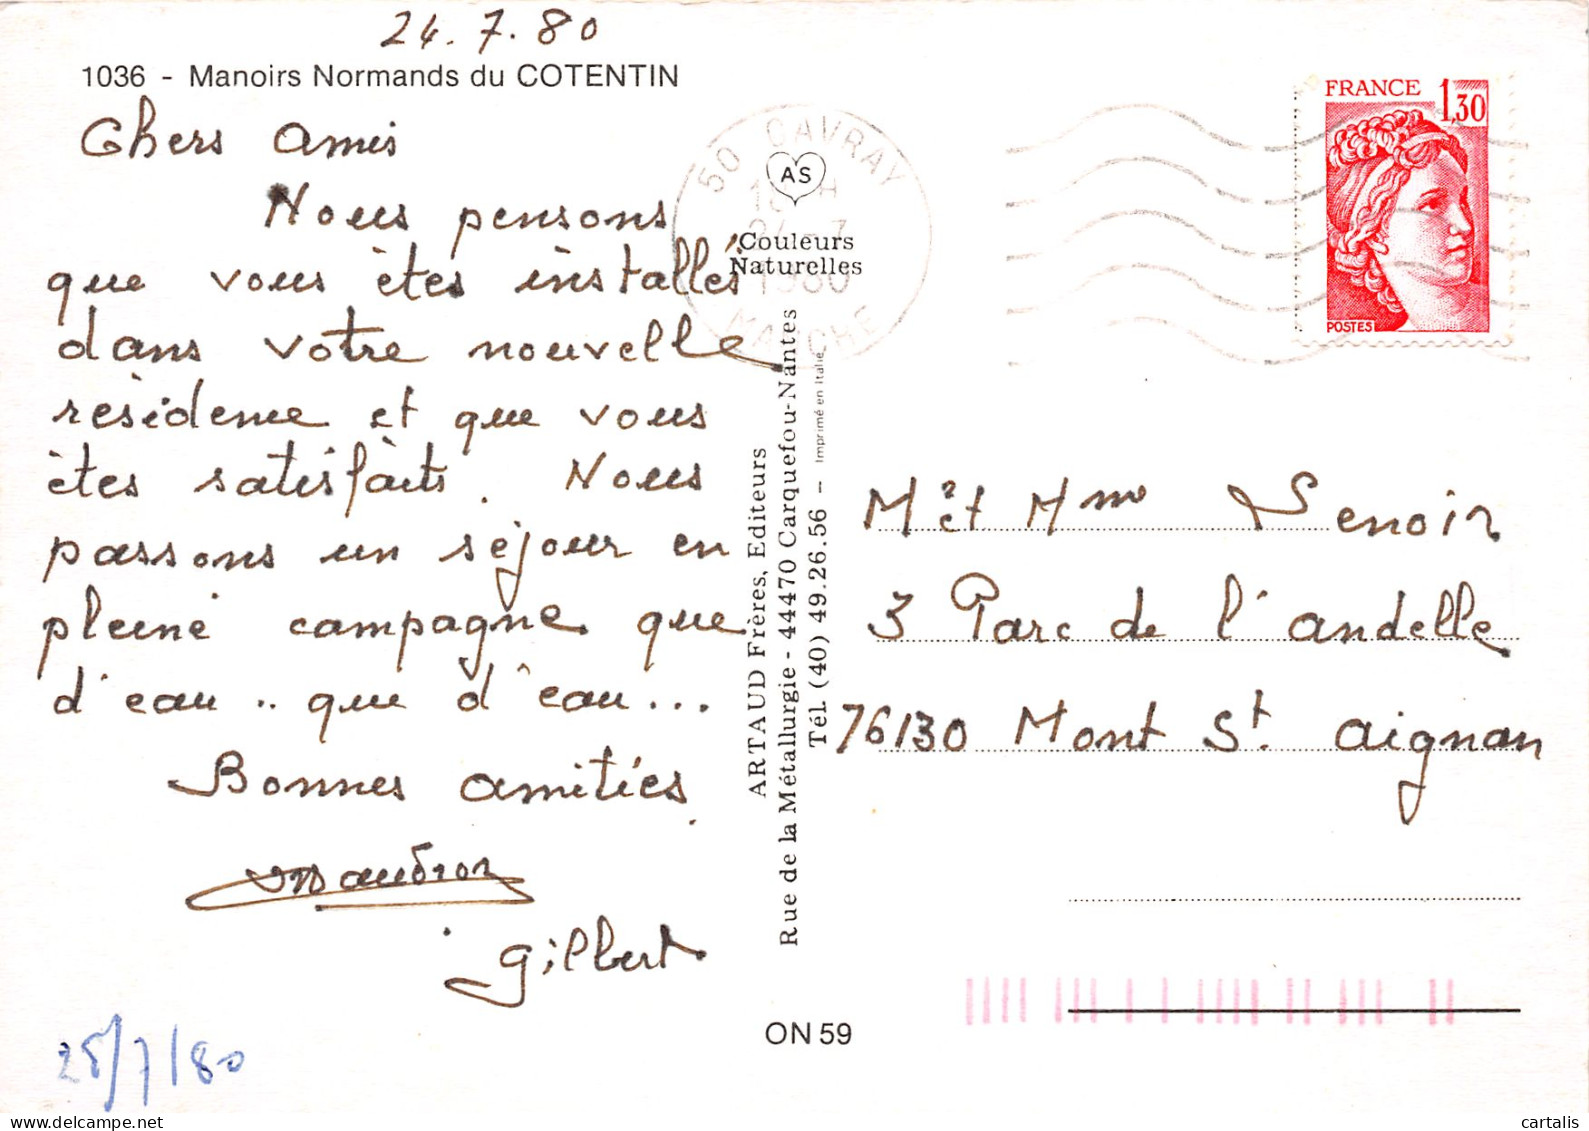 24.7.80
1036 - Manoirs Normands du COTENTIN
Chers Amis
Nous pensons
que vous êtes installés
dans votre nouvelle
résidence et que vous
êtes satisfaits. Nous
passons un séjour en
pleine campagne que
d'eau .. que d'eau ...
Bonnes amitiés
Gilbert
25/7/80
ON 59
50 GAVRAY
24-7
1980
MANCHE
AS
Couleurs
Naturelles
ARTAUD Frères, Editeurs
Rue de la Métallurgie - 44470 Carquefou-Nantes
Tél. (40) 49.26.56 — Imprimé en Italie
FRANCE 1,30
POSTES
Mr et Mme Lenoir
3 Parc de l'andelle
76130 Mont St. aignan
cartalis
www.delcampe.net